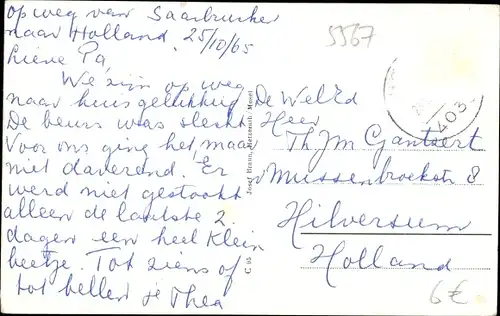 op weg van Saarbrucken
naar Holland. 25/10/65
Lieve Pa,
We zijn op weg
naar huis gelukkig
De beurs was slecht
Voor ons ging het maar
niet daverend. Er
werd niet gestookt
alleen de laatste 2
dagen een heel klein
beetje. Tot ziens of
tot bellen je Thea
5567
403
De Wel.Ed
Heer
Th JM Gantvert
v Mussenbroekstr 8
Hilversum
Holland
6€
C 65